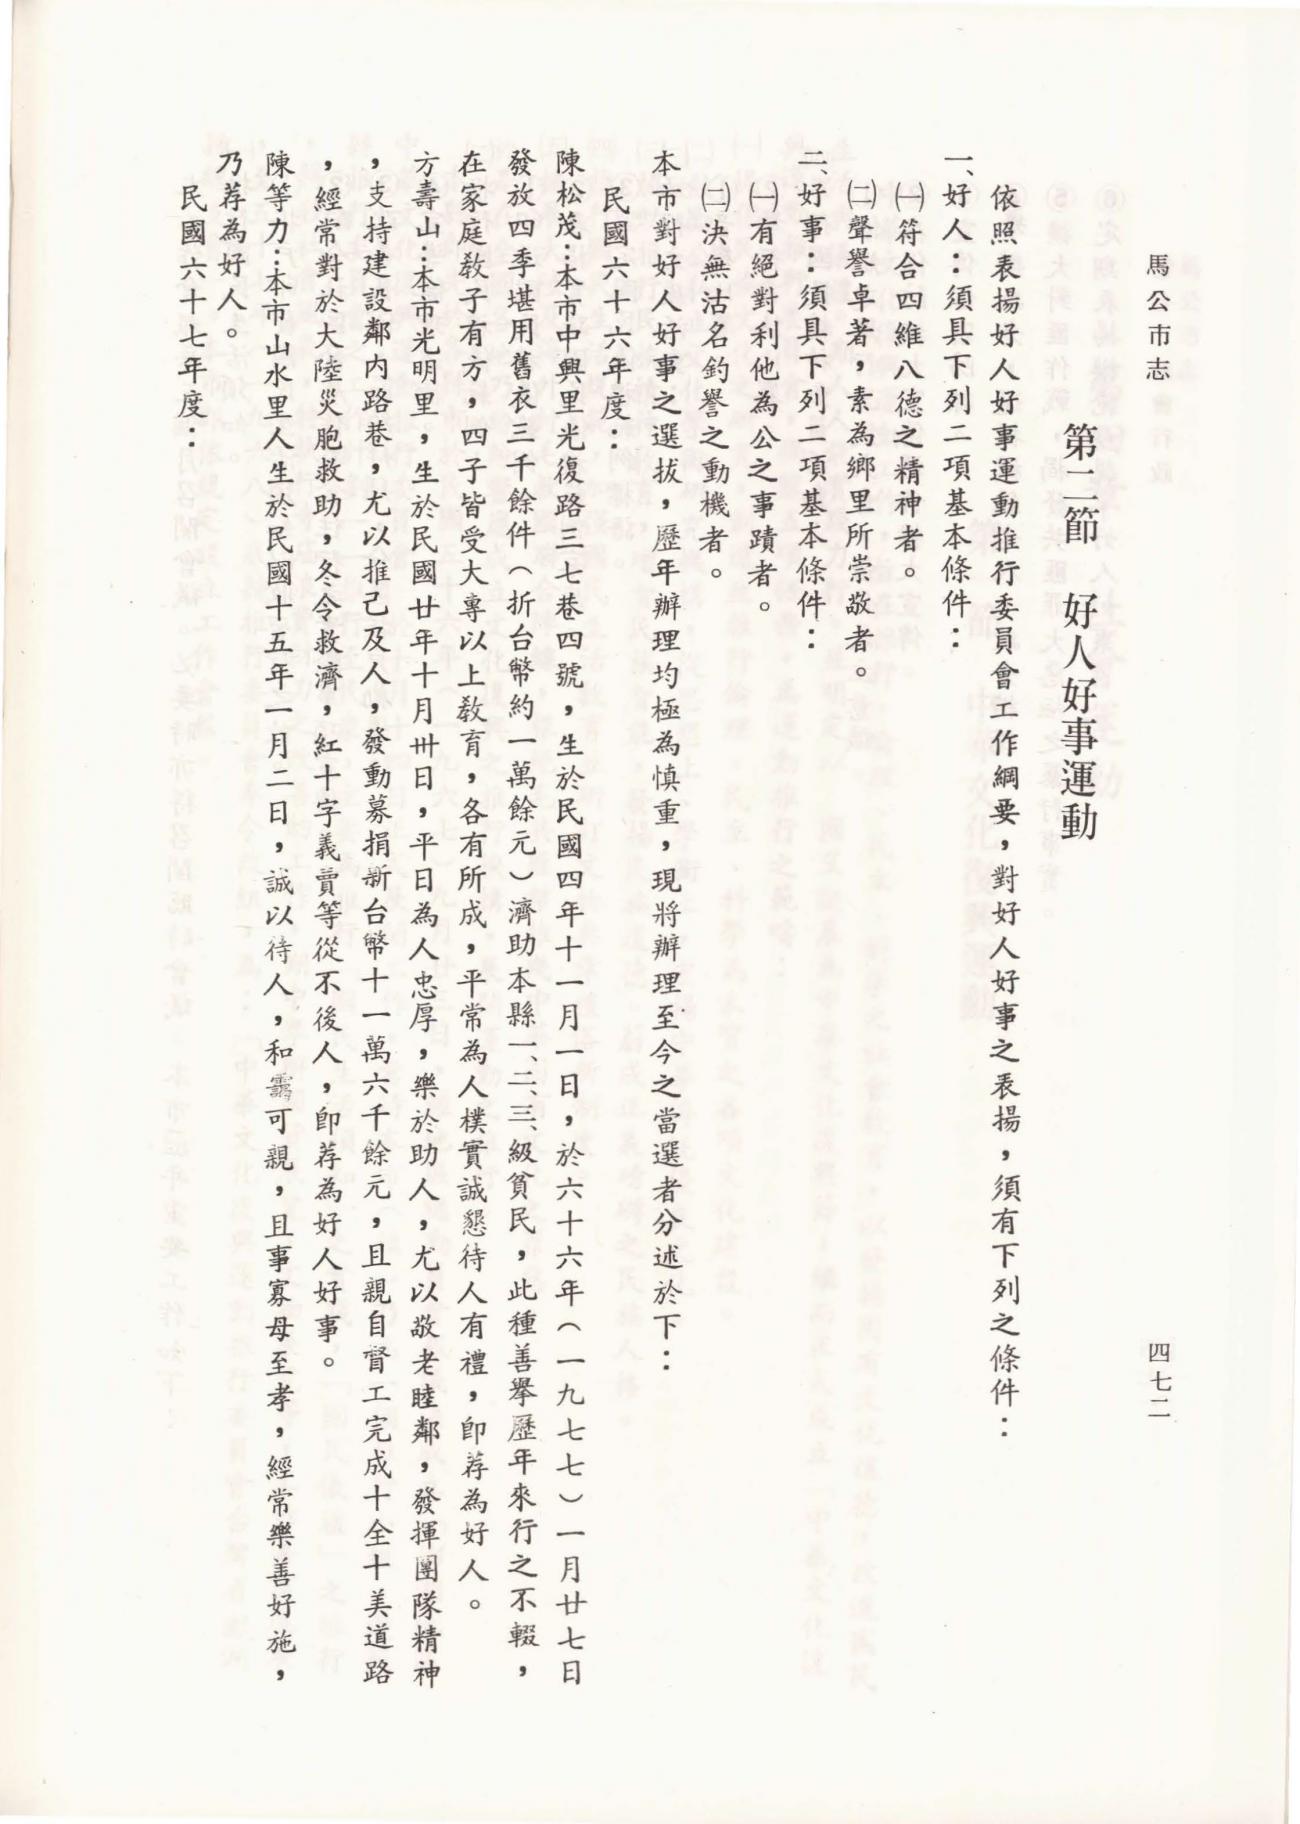 馬公市志
四七二
第二節　好人好事運動
依照表揚好人好事運動推行委員會工作綱要，對好人好事之表揚，須有下列之條件：
一、好人：須具下列二項基本條件：
㈠符合四維八德之精神者。
㈡聲譽卓著，素為鄉里所崇敬者。
二、好事：須具下列二項基本條件：
㈠有絕對利他為公之事蹟者。
㈡決無沽名釣譽之動機者。
本市對好人好事之選拔，歷年辦理均極為慎重，現將辦理至今之當選者分述於下：
民國六十六年度：
陳松茂：本市中興里光復路三七巷四號，生於民國四年十一月一日，於六十六年（一九七七）一月廿七日
發放四季堪用舊衣三千餘件（折台幣約一萬餘元）濟助本縣一、二、三、級貧民，此種善舉歷年來行之不輟，
在家庭教子有方，四子皆受大專以上教育，各有所成，平常為人樸實誠懇待人有禮，即荐為好人。
方壽山：本市光明里，生於民國廿年十月卅日，平日為人忠厚，樂於助人，尤以敬老睦鄰，發揮團隊精神
，支持建設鄰內路巷，尤以推己及人，發動募捐新台幣十一萬六千餘元，且親自督工完成十全十美道路
，經常對於大陸災胞救助，冬令救濟，紅十字義賣等從不後人，即荐為好人好事。
陳等力：本市山水里人生於民國十五年一月二日，誠以待人，和靄可親，且事寡母至孝，經常樂善好施，
乃荐為好人。
民國六十七年度：